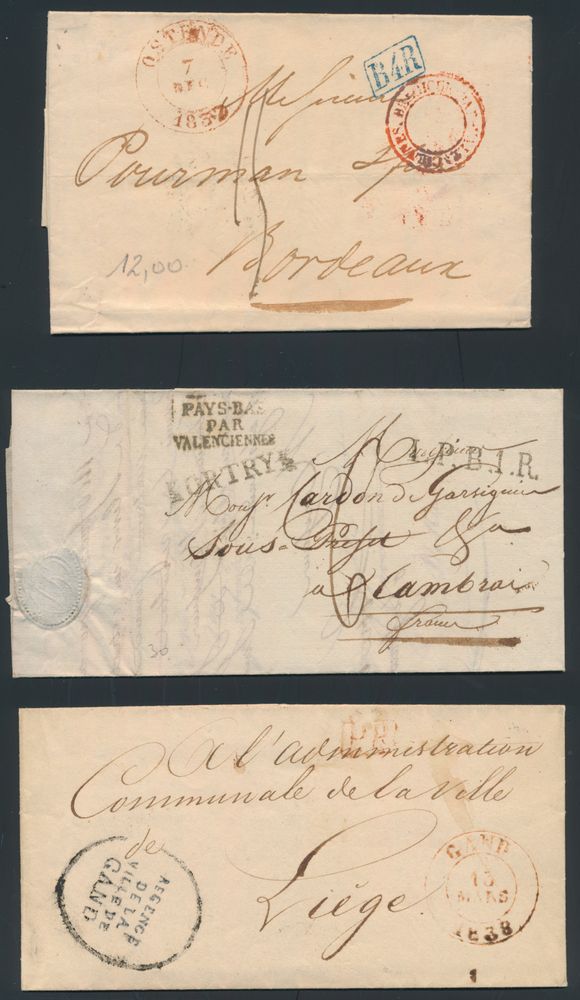 OSTENDE
7
DEC
1837
B4R
Pourman
Bordeaux
12,00
PAYS-BAS
PAR
VALENCIENNES
KORTRYK
L.P.B.1.R.
Monsieur
Monsr Cardon de Garsignies
Sous-Préfet &a
à Cambrai
france
30
A l'administration
Communale de la Ville
de
Liége
REGENCE
DE LA
VILLE DE
GAND
GAND
13
MARS
1838
1